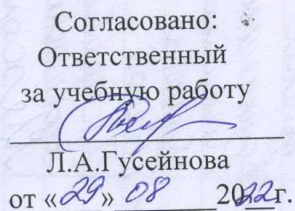 Согласовано:
Ответственный
за учебную работу
Л.А.Гусейнова
от «29» 08 2022 г.